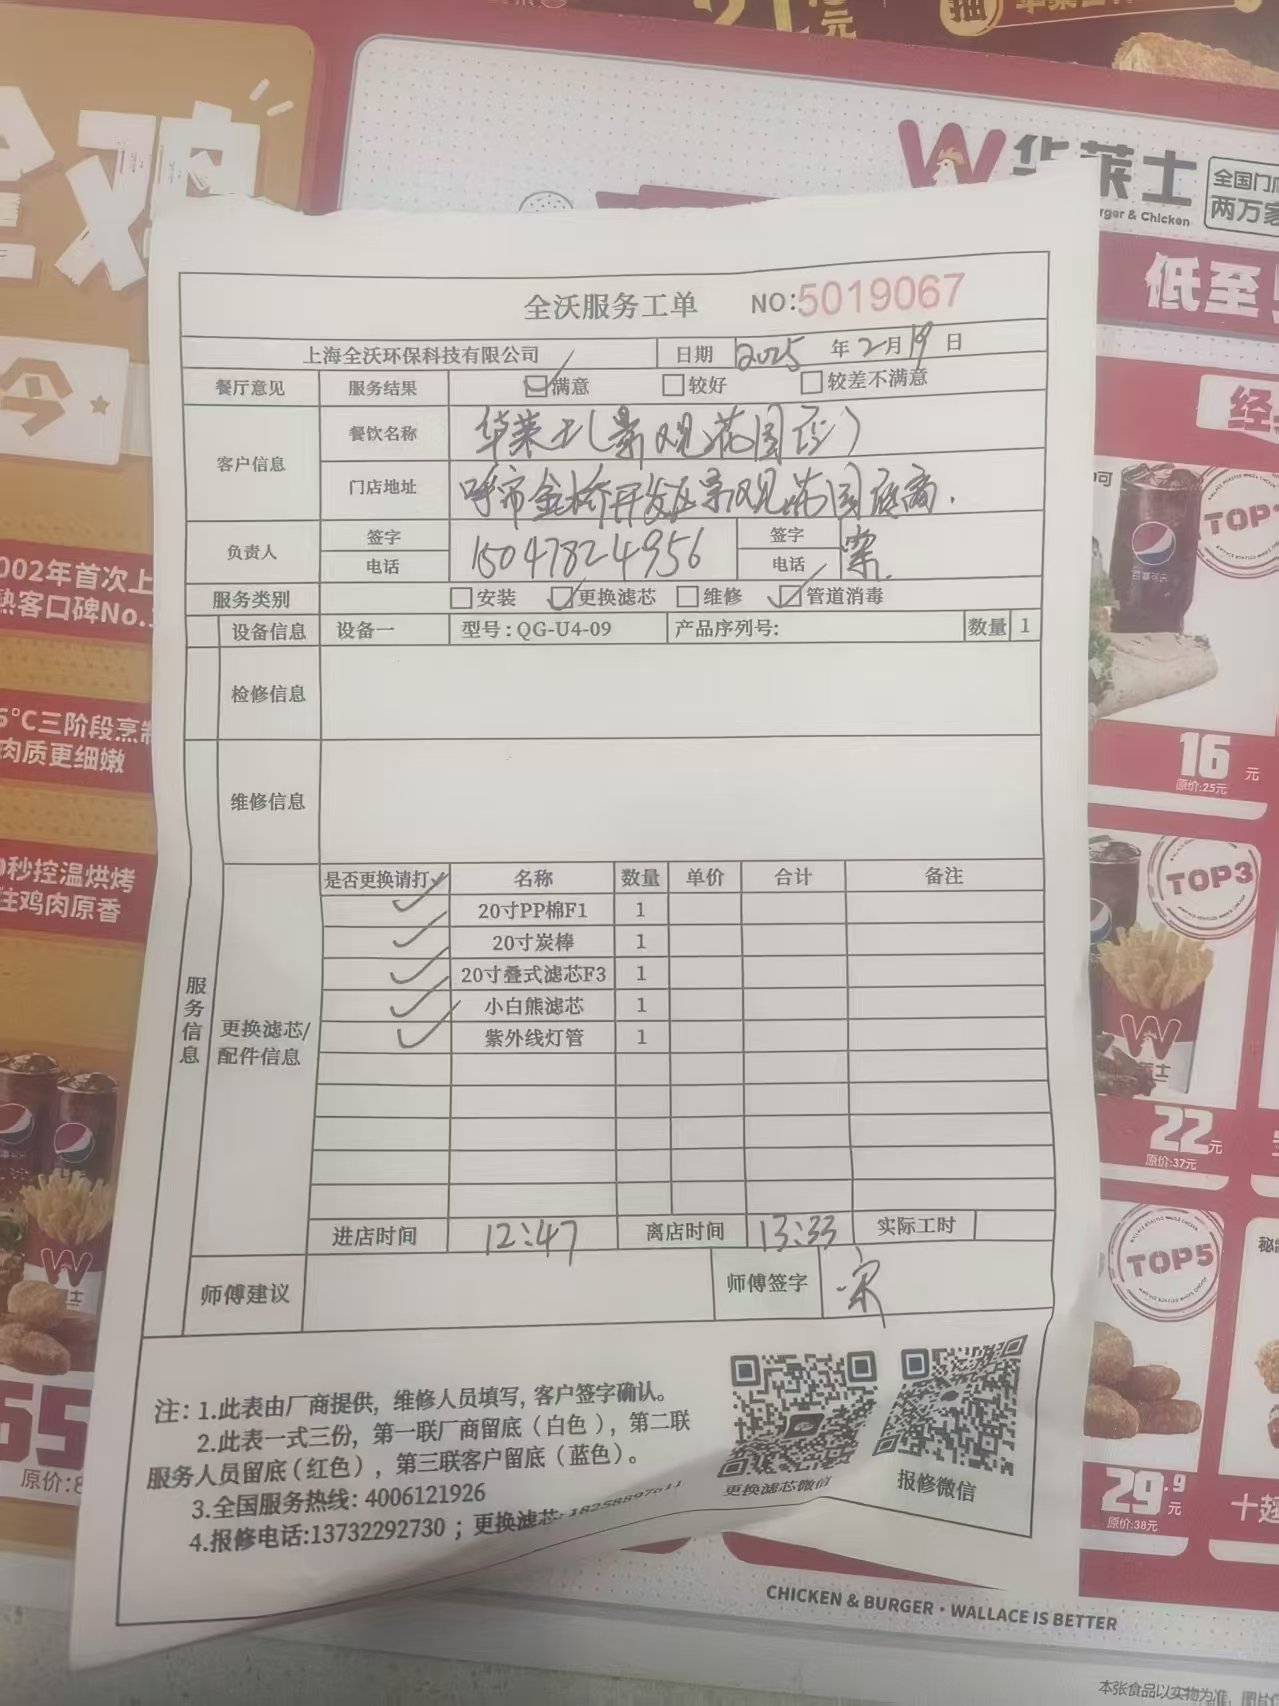 全沃服务工单 NO:5019067
上海全沃环保科技有限公司 日期 2025 年 2 月 19 日
餐厅意见 服务结果 满意 较好 较差不满意
客户信息 餐饮名称 华莱士(景观花园店)
门店地址 呼市金桥开发区景观花园底商.
负责人 签字 电话 15047824956 签字 电话
服务类别 安装 更换滤芯 维修 管道消毒
设备信息 设备一 型号:QG-U4-09 产品序列号: 数量 1
检修信息
维修信息
服务信息
更换滤芯/配件信息
是否更换请打✓ 名称 数量 单价 合计 备注
✓ 20寸PP棉F1 1
✓ 20寸炭棒 1
✓ 20寸叠式滤芯F3 1
✓ 小白熊滤芯 1
✓ 紫外线灯管 1
进店时间 12:47 离店时间 13:33 实际工时
师傅建议 师傅签字 宋
注: 1.此表由厂商提供, 维修人员填写, 客户签字确认。
2.此表一式三份, 第一联厂商留底(白色), 第二联
服务人员留底(红色), 第三联客户留底(蓝色)。
3.全国服务热线: 4006121926
4.报修电话:13732292730 ; 更换滤芯:
更换滤芯微信 报修微信
华莱士
全国门
两万家
rger & Chicken
低至
经
TOP
16 元
原价:25元
TOP3
22 元
原价:37元
TOP5
29.9 元
原价:38元
十
CHICKEN & BURGER · WALLACE IS BETTER
本张食品以实物为准,
鸡
今
002年首次上
熟客口碑No.
5°C三阶段烹
肉质更细嫩
秒控温烘烤
住鸡肉原香
65
原价:8
元
抽